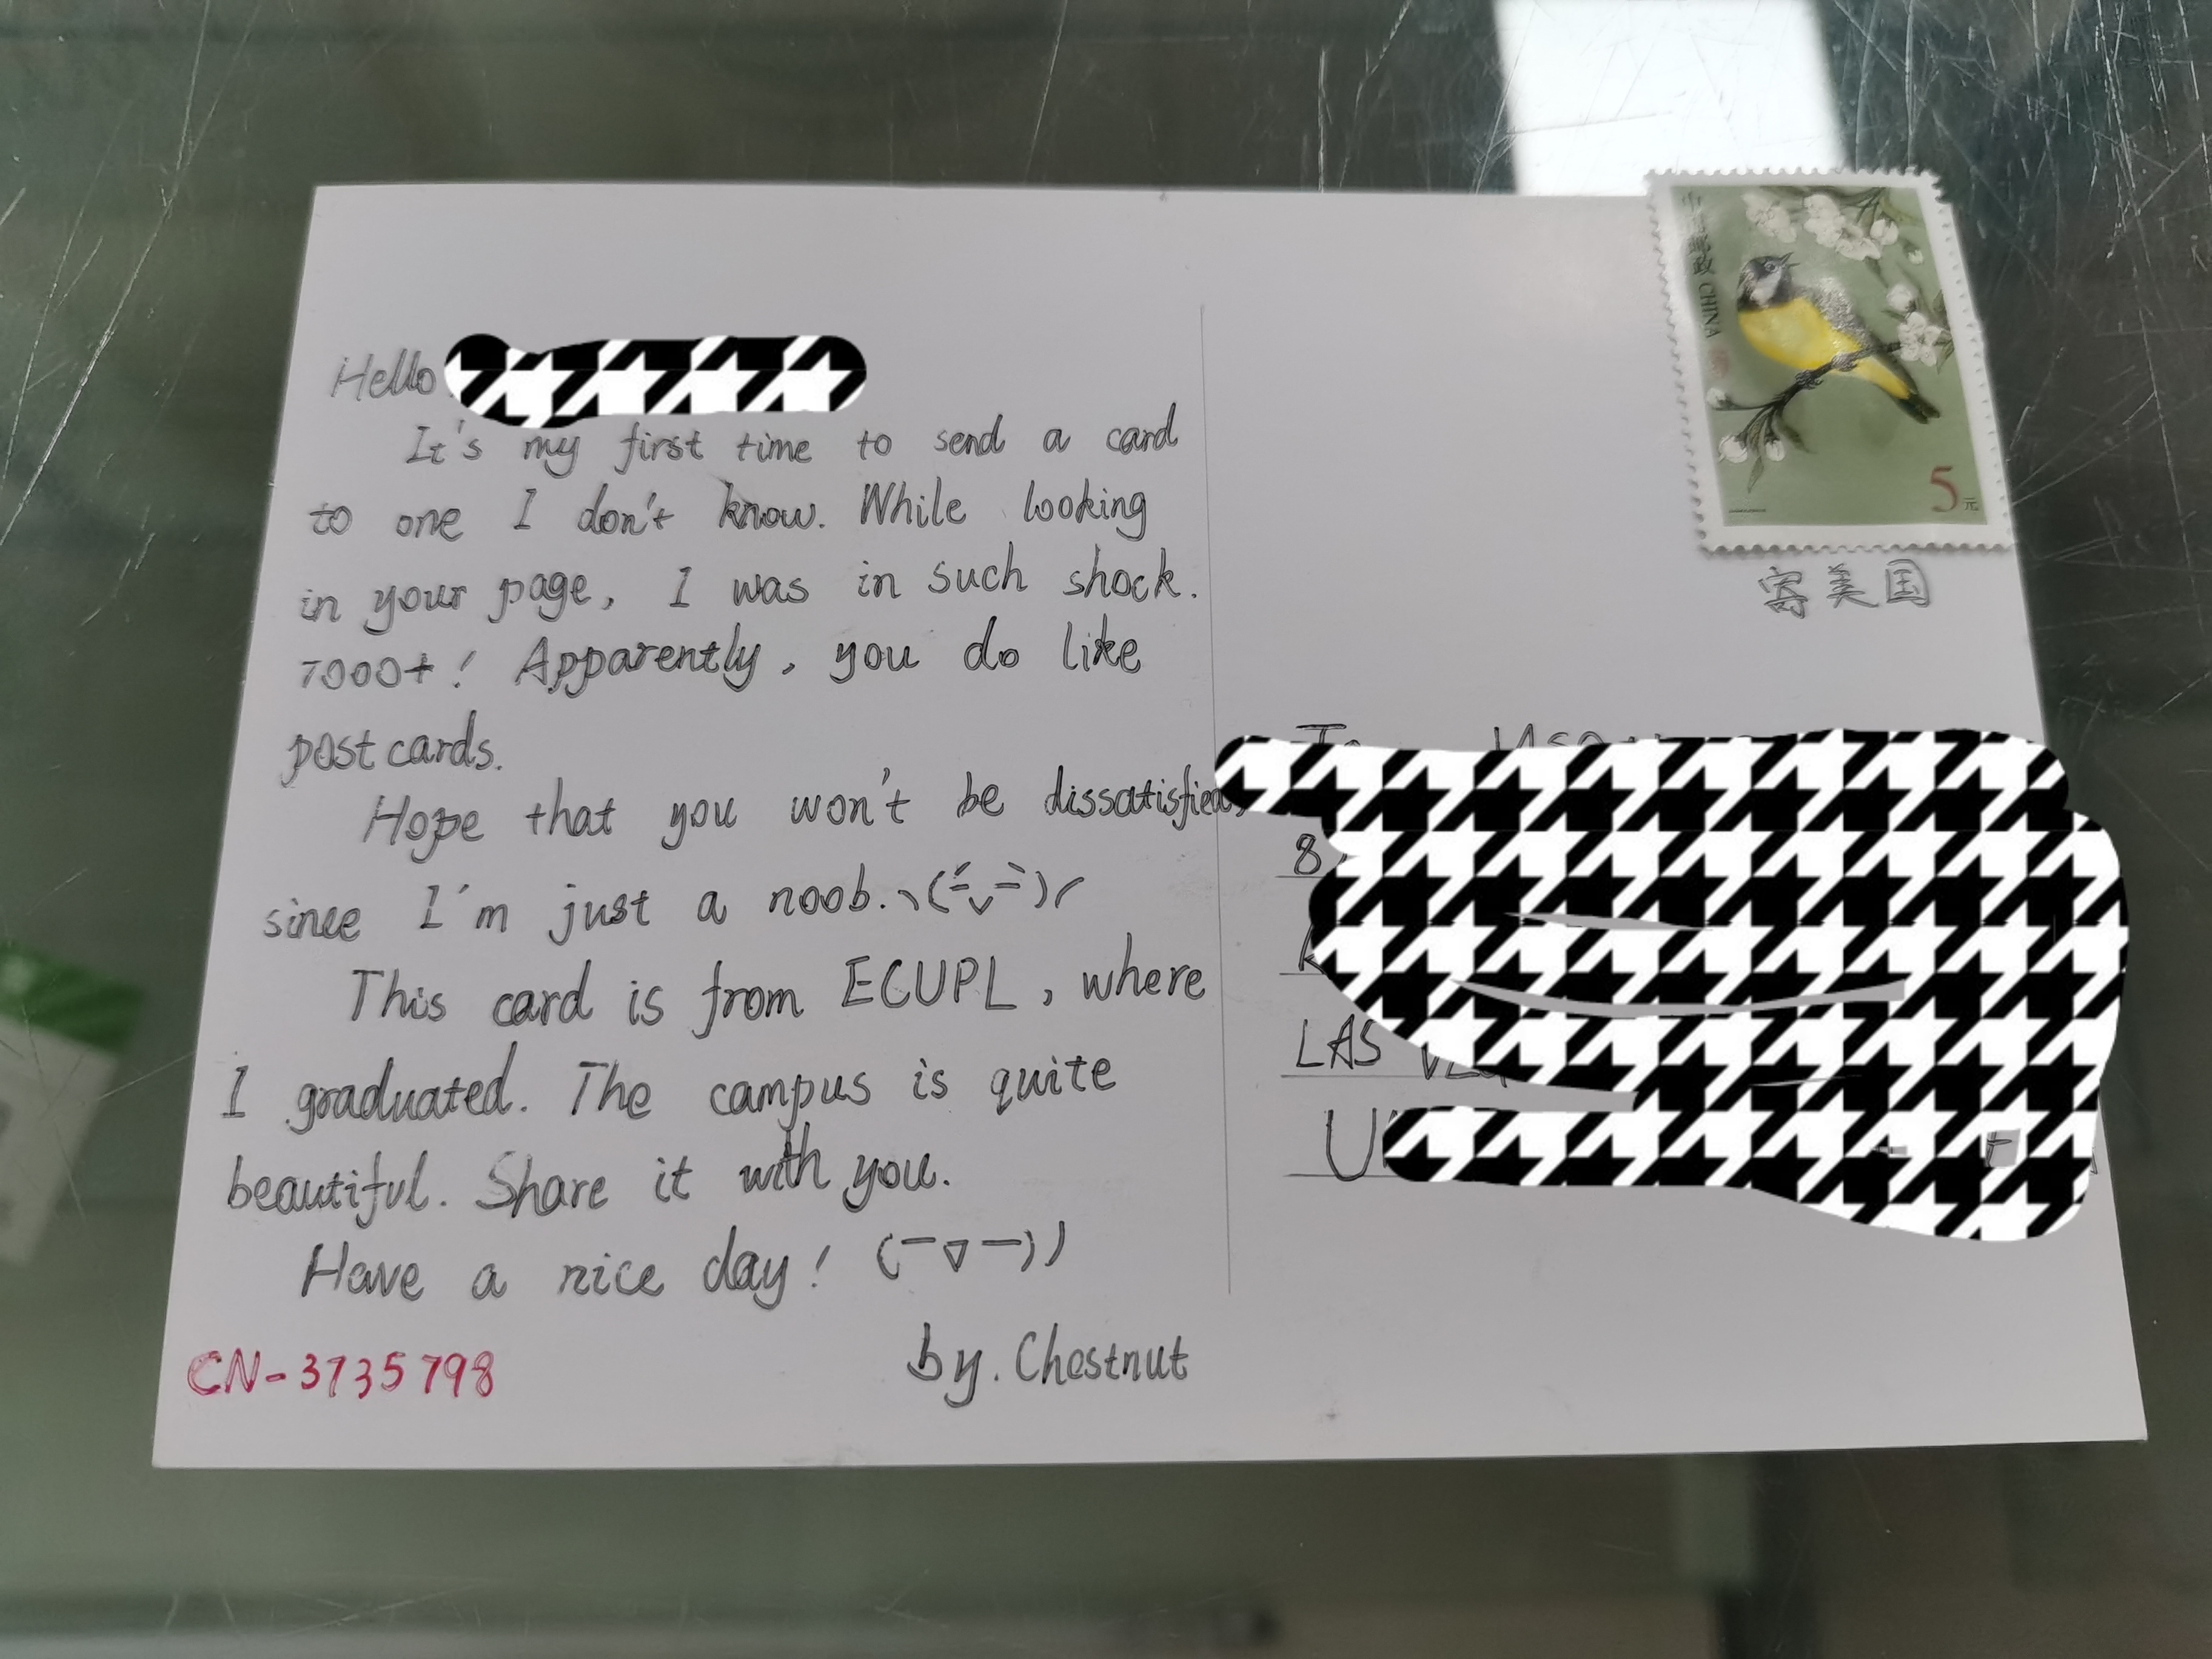 Hello
It's my first time to send a card
to one I don't know. While looking
in your page, I was in such shock.
7000+! Apparently, you do like
postcards.
Hope that you won't be dissatisfied,
since I'm just a noob.ヽ(=́ᵥ=̀)ノ
This card is from ECUPL, where
I graduated. The campus is quite
beautiful. Share it with you.
Have a nice day! (￣▽￣))
by. Chestnut
CN-3735798
中国邮政 CHINA
5元
寄美国
To
8
LAS